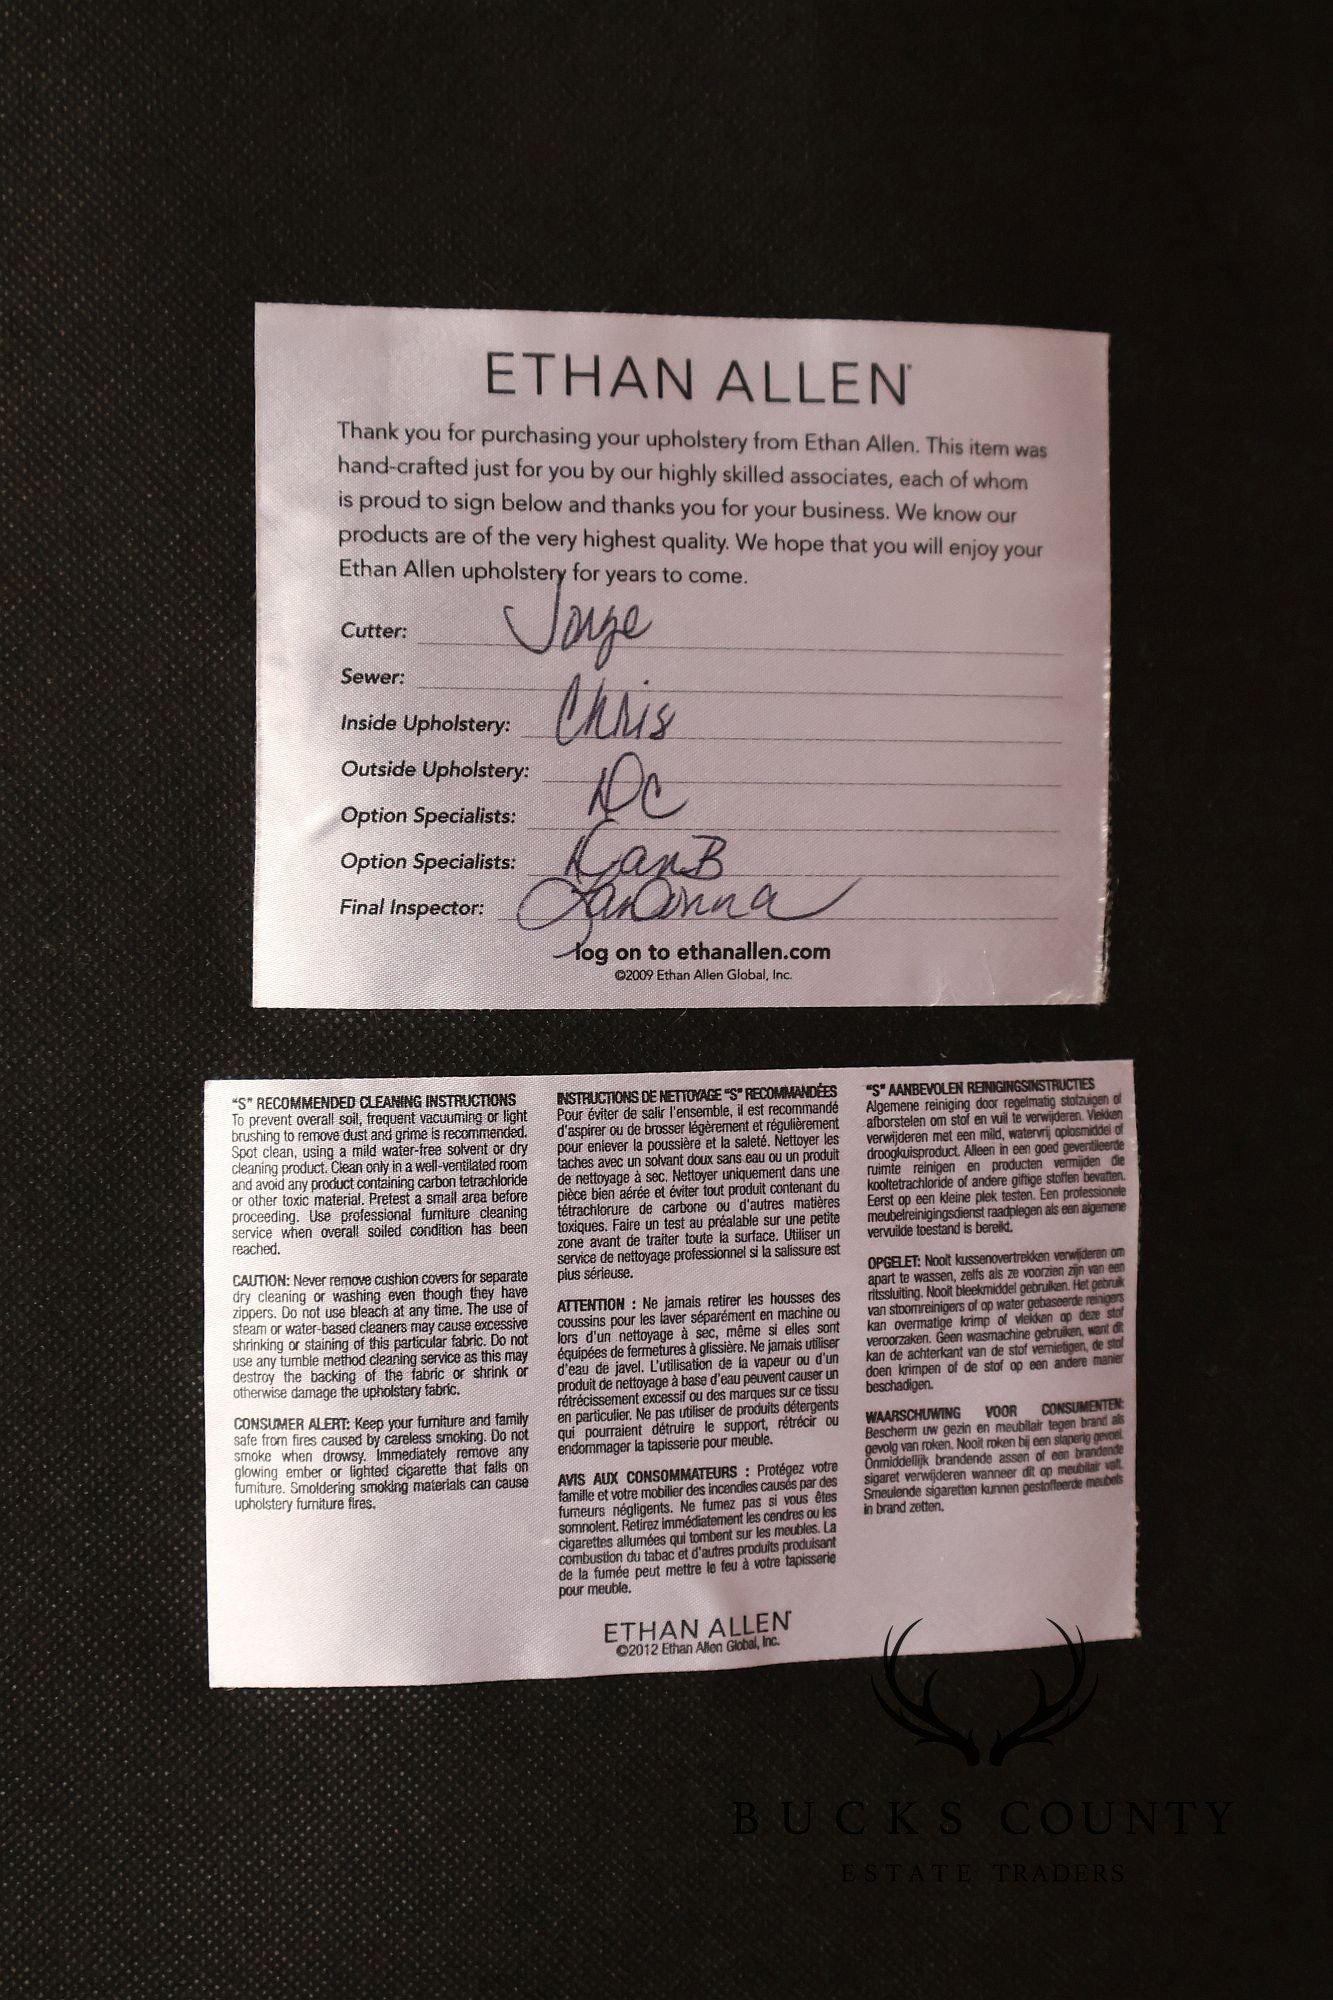 ETHAN ALLEN®
Thank you for purchasing your upholstery from Ethan Allen. This item was
hand-crafted just for you by our highly skilled associates, each of whom
is proud to sign below and thanks you for your business. We know our
products are of the very highest quality. We hope that you will enjoy your
Ethan Allen upholstery for years to come.
Cutter: Jorge
Sewer:
Inside Upholstery: Chris
Outside Upholstery:
Option Specialists: DC
Option Specialists: DanB
Final Inspector: LanDonna
log on to ethanallen.com
©2009 Ethan Allen Global, Inc.
"S" RECOMMENDED CLEANING INSTRUCTIONS
To prevent overall soil, frequent vacuuming or light
brushing to remove dust and grime is recommended.
Spot clean, using a mild water-free solvent or dry
cleaning product. Clean only in a well-ventilated room
and avoid any product containing carbon tetrachloride
or other toxic material. Pretest a small area before
proceeding. Use professional furniture cleaning
service when overall soiled condition has been
reached.
CAUTION: Never remove cushion covers for separate
dry cleaning or washing even though they have
zippers. Do not use bleach at any time. The use of
steam or water-based cleaners may cause excessive
shrinking or staining of this particular fabric. Do not
use any tumble method cleaning service as this may
destroy the backing of the fabric or shrink or
otherwise damage the upholstery fabric.
CONSUMER ALERT: Keep your furniture and family
safe from fires caused by careless smoking. Do not
smoke when drowsy. Immediately remove any
glowing ember or lighted cigarette that falls on
furniture. Smoldering smoking materials can cause
upholstery furniture fires.
INSTRUCTIONS DE NETTOYAGE "S" RECOMMANDÉES
Pour éviter de salir l'ensemble, il est recommandé
d'aspirer ou de brosser légèrement et régulièrement
pour enlever la poussière et la saleté. Nettoyer les
taches avec un solvant doux sans eau ou un produit
de nettoyage à sec. Nettoyer uniquement dans une
pièce bien aérée et éviter tout produit contenant du
tétrachlorure de carbone ou d'autres matières
toxiques. Faire un test au préalable sur une petite
zone avant de traiter toute la surface. Utiliser un
service de nettoyage professionnel si la salissure est
plus sérieuse.
ATTENTION : Ne jamais retirer les housses des
coussins pour les laver séparément en machine ou
lors d'un nettoyage à sec, même si elles sont
équipées de fermetures à glissière. Ne jamais utiliser
d'eau de javel. L'utilisation de la vapeur ou d'un
produit de nettoyage à base d'eau peuvent causer un
rétrécissement excessif ou des marques sur ce tissu
en particulier. Ne pas utiliser de produits détergents
qui pourraient détruire le support, rétrécir ou
endommager la tapisserie pour meuble.
AVIS AUX CONSOMMATEURS : Protégez votre
famille et votre mobilier des incendies causés par des
fumeurs négligents. Ne fumez pas si vous êtes
somnolent. Retirez immédiatement les cendres ou les
cigarettes allumées qui tombent sur les meubles. La
combustion du tabac et d'autres produits produisant
de la fumée peut mettre le feu à votre tapisserie
pour meuble.
"S" AANBEVOLEN REINIGINGSINSTRUCTIES
Algemene reiniging door regelmatig stofzuigen of
afborstelen om stof en vuil te verwijderen. Vlekken
verwijderen met een mild, watervrij oplosmiddel of
droogkuisproduct. Alleen in een goed geventileerde
ruimte reinigen en producten vermijden die
kooltetrachloride of andere giftige stoffen bevatten.
Eerst op een kleine plek testen. Een professionele
meubelreinigingsdienst raadplegen als een algemene
vervuilde toestand is bereikt.
OPGELET: Nooit kussenovertrekken verwijderen om
apart te wassen, zelfs als ze voorzien zijn van een
ritssluiting. Nooit bleekmiddel gebruiken. Het gebruik
van stoomreinigers of op water gebaseerde reinigers
kan overmatige krimp of vlekken op deze stof
veroorzaken. Geen wasmachine gebruiken, want dit
kan de achterkant van de stof vernietigen, de stof
doen krimpen of de stof op een andere manier
beschadigen.
WAARSCHUWING VOOR CONSUMENTEN:
Bescherm uw gezin en meubilair tegen brand als
gevolg van roken. Nooit roken bij een slaperig gevoel.
Onmiddellijk brandende assen of een brandende
sigaret verwijderen wanneer dit op meubilair valt.
Smeulende sigaretten kunnen gestoffeerde meubels
in brand zetten.
ETHAN ALLEN®
©2012 Ethan Allen Global, Inc.
BUCKS COUNTY
ESTATE TRADERS